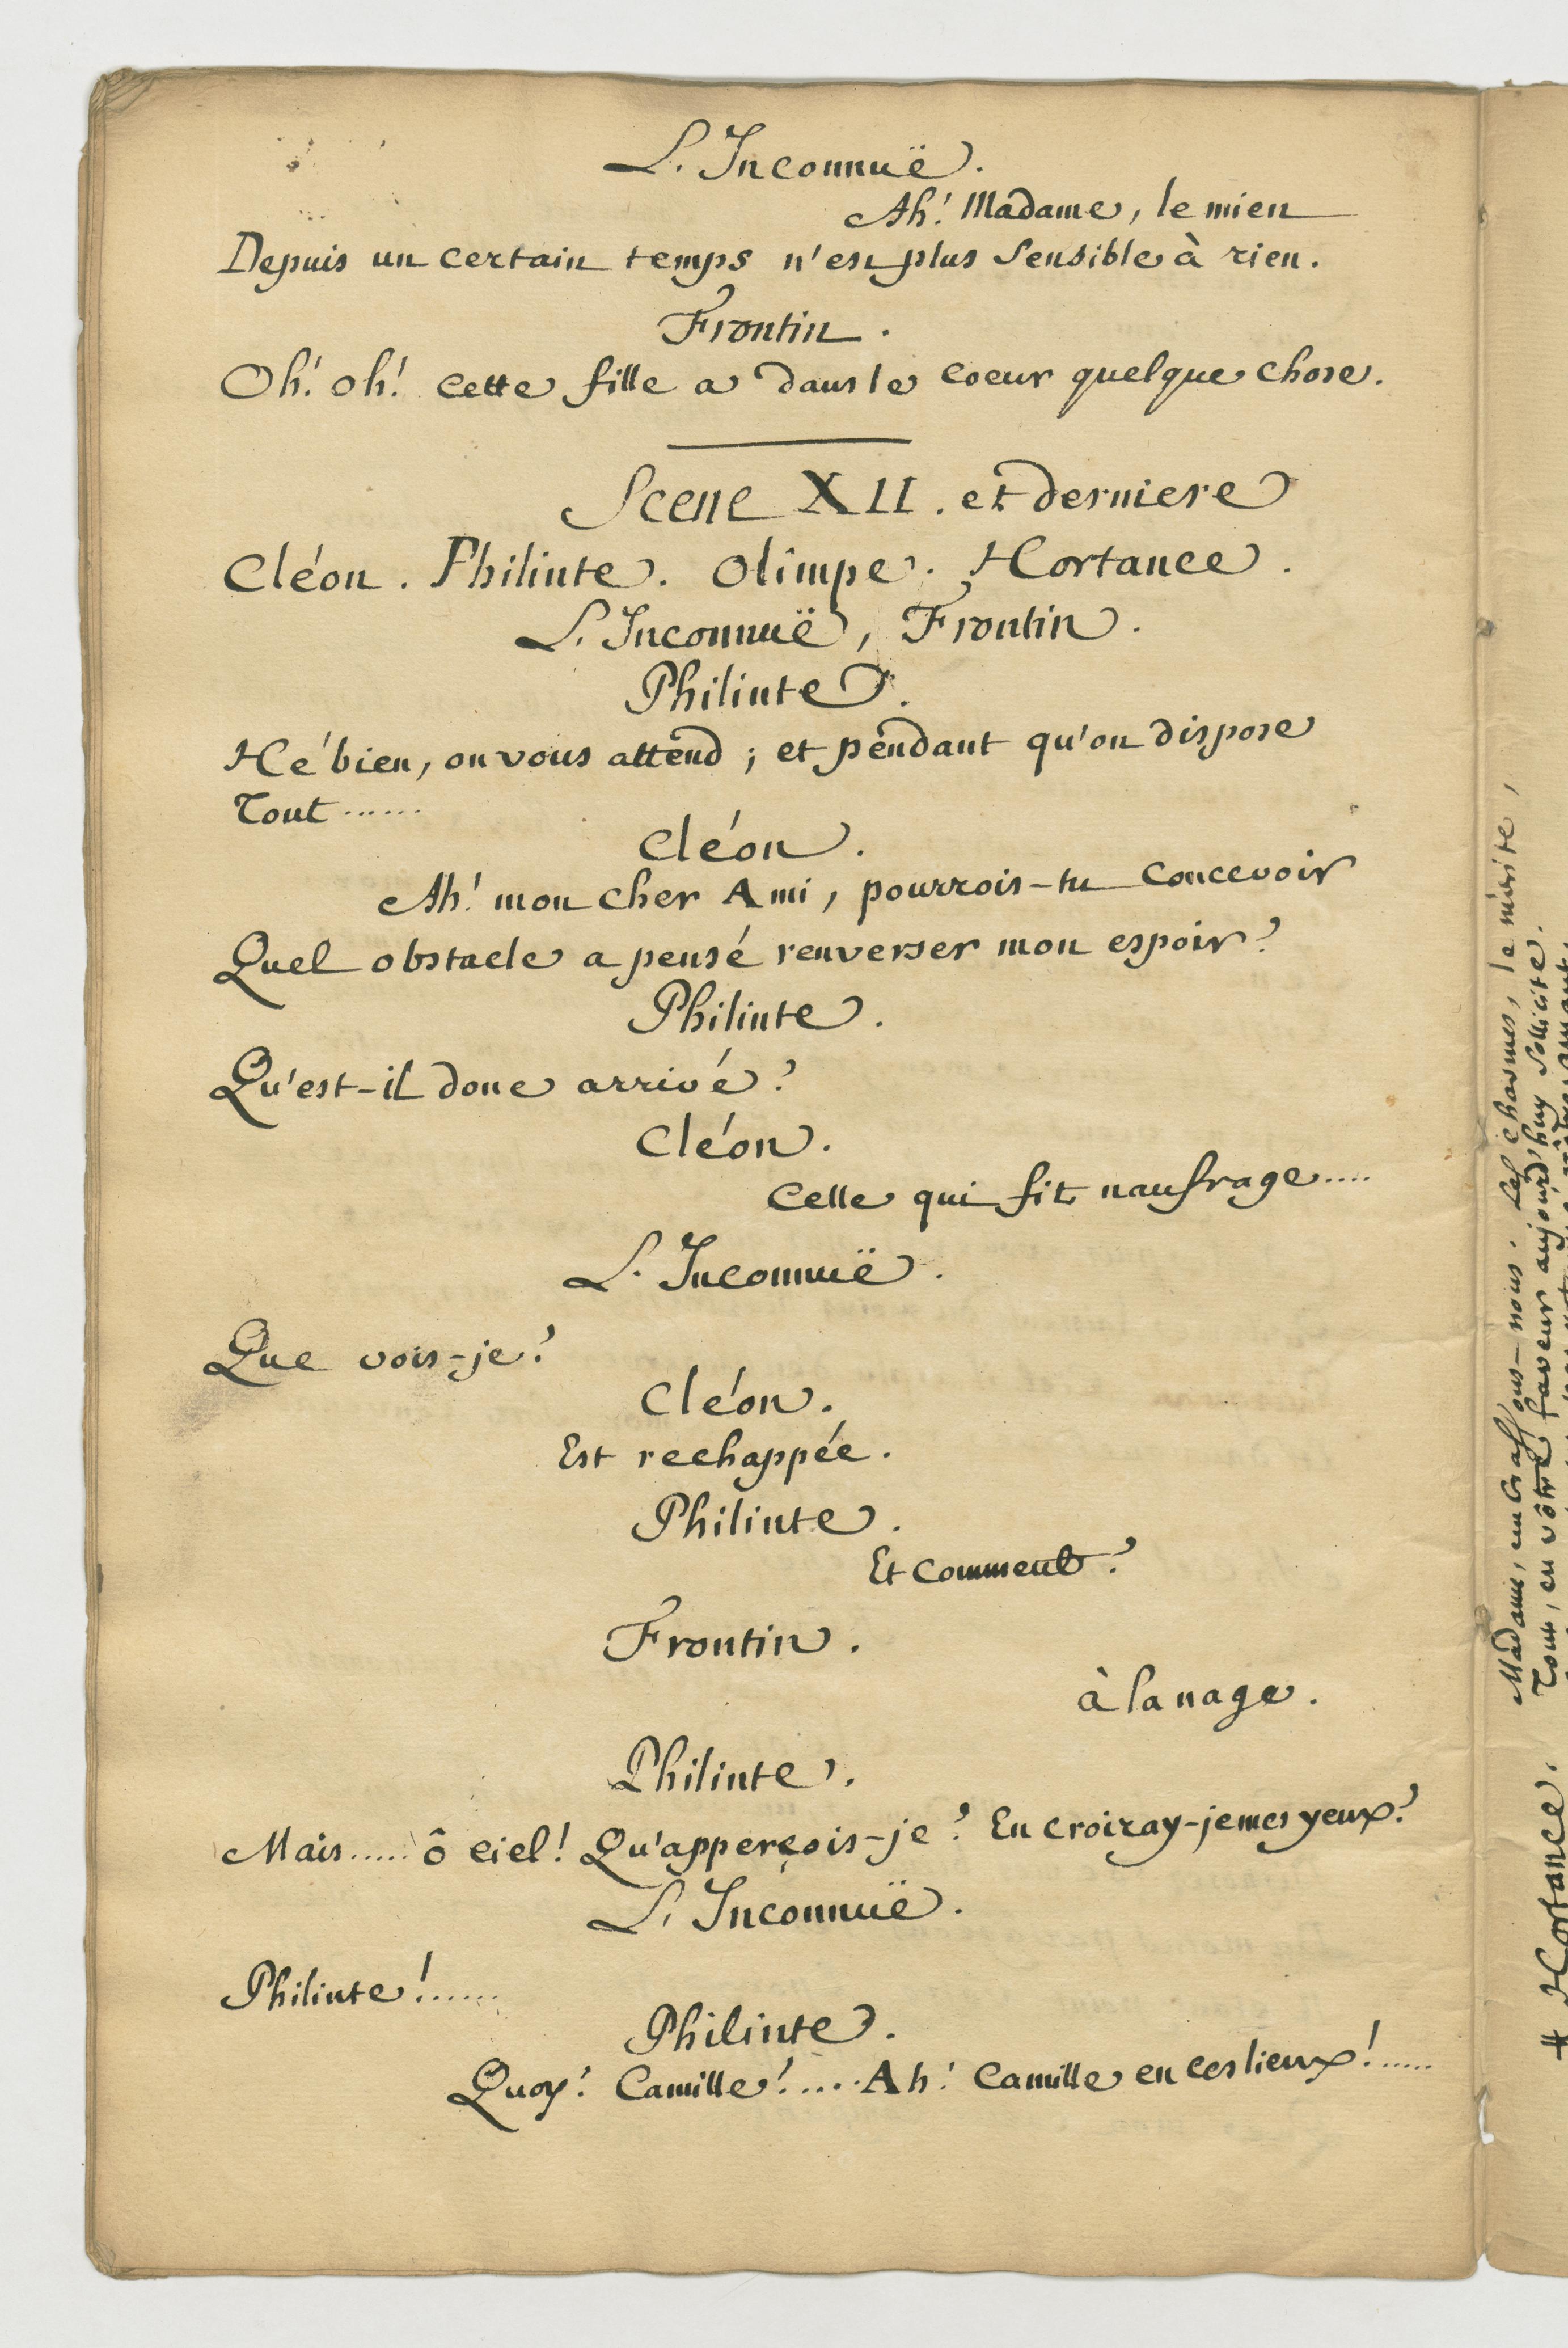 L'Inconnuë.
Ah! Madame, le mien
Depuis un certain temps n'est plus sensible à rien.
Frontin.
Oh! oh! cette fille a dans le coeur quelque chose.
Scene XII. et derniere
Cléon. Philinte. Olimpe. Hortance.
L'Inconnuë, Frontin.
Philinte.
Hé bien, on vous attend; et pendant qu'on dispose
Tout......
Cléon.
Ah! mon cher Ami, pourrois-tu concevoir
Quel obstacle a pensé renverser mon espoir?
Philinte.
Qu'est-il donc arrivé?
Cléon.
Celle qui fit naufrage....
L'Inconnuë.
Que vois-je?
Cléon.
Est rechappée.
Philinte.
Et comment?
Frontin.
à la nage.
Philinte.
Mais..... ô ciel! Qu'apperçois-je? En croiray-je mes yeux?
L'Inconnuë.
Philinte!......
Philinte.
Quoy! Camille!..... Ah! Camille en ces lieux!.....
# Hortance.
Madame, embrassons-nous. Les charmes, le mérite,
Tout, en vôtre faveur aujourd'huy sollicite.